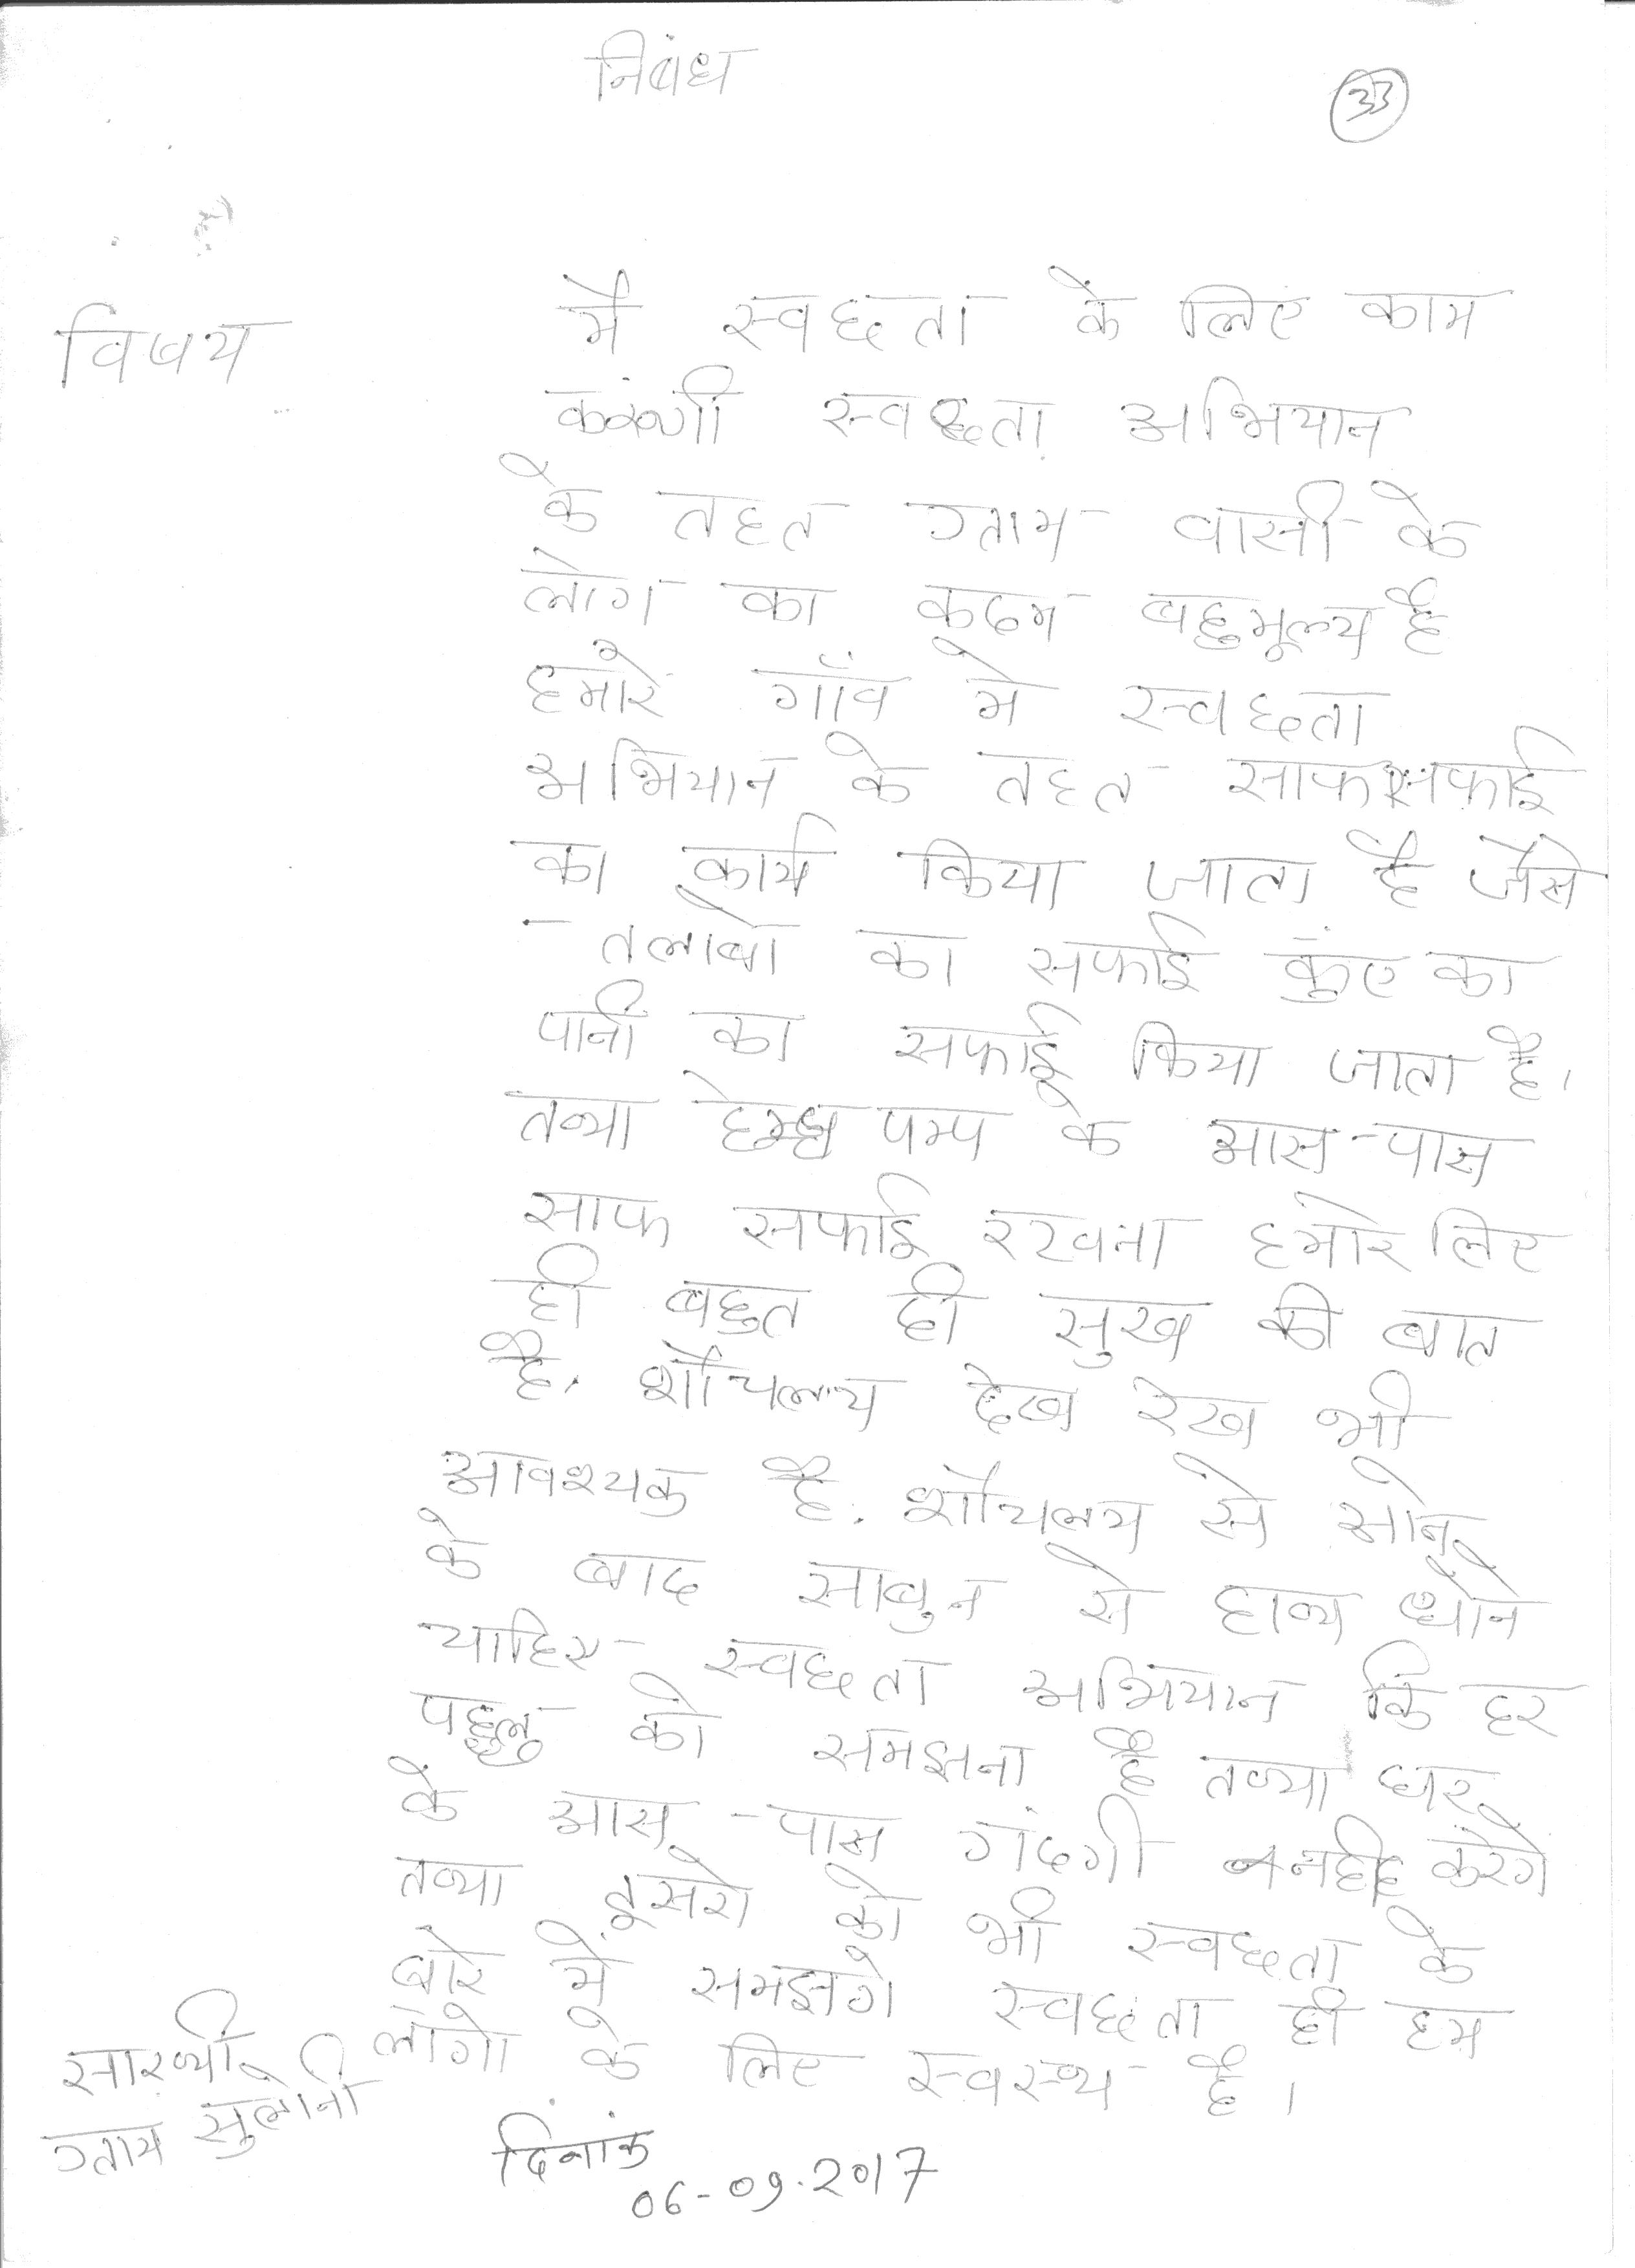 निबंध
33
विषय
मै स्वछता के लिए काम
करूंगी स्वछता अभियान
के तहत ग्राम वासी के
लोग का कदम बहुमूल्य है
हमारे गाँव मे स्वछता
अभियान के तहत साफसफाई
का कार्य किया जाता है जैसे
- तलाबो का सफाई कुंए का
पानी का सफाई किया जाता है.
तथा पम्प के आस-पास
साफ सफाई रखना हमारे लिए
ही बहुत ही सुख की बात
है. शौचलय देख रेख भी
आवश्यक है. शौचलय से आने
के बाद साबुन से हाथ धोने
चाहिए स्वछता अभियान कि हर
पहुलु को समझना है तथा घर
के आस-पास गंदगी नही करेंगे
तथा दूसरो को भी स्वछता के
बारे में समझगे स्वछता ही हम
लोगो के लिए स्वस्थ है।
सारथी
ग्राम सुलोनी
दिनांक
06-09.2017